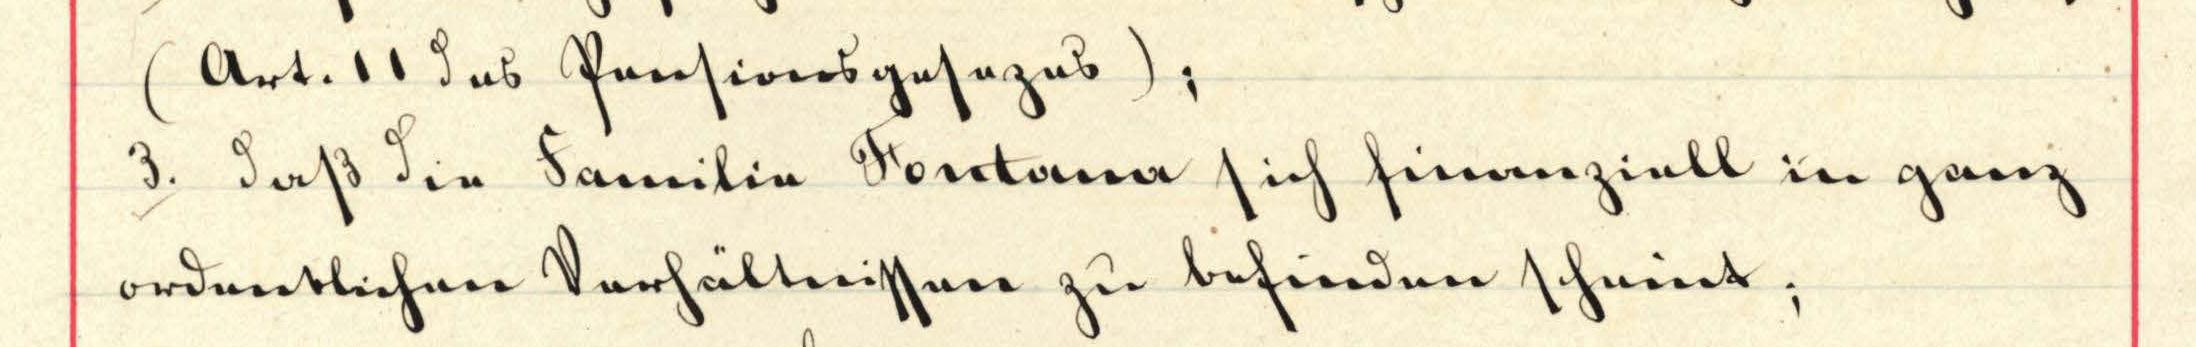 (Art. 11 des Pensionsgesezes);
3. daß die Familie Fontana sich finanziell in ganz
ordentlichen Verhältnissen zu befinden scheint;